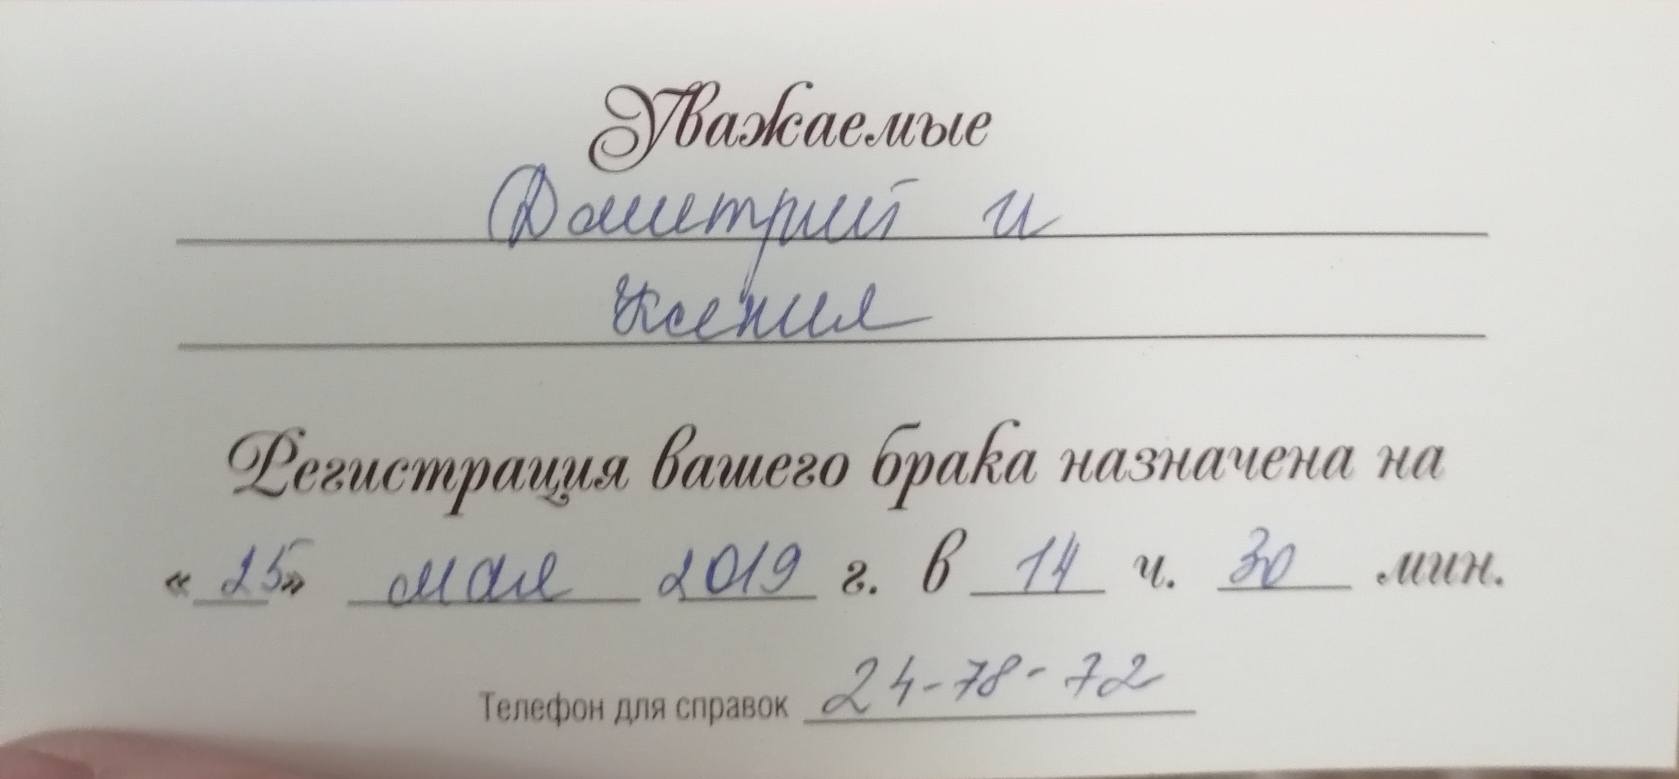 Уважаемые
Дмитрий и
Ксения
Регистрация вашего брака назначена на
«25» мая 2019 г. в 14 ч. 30 мин.
Телефон для справок 24-78-72